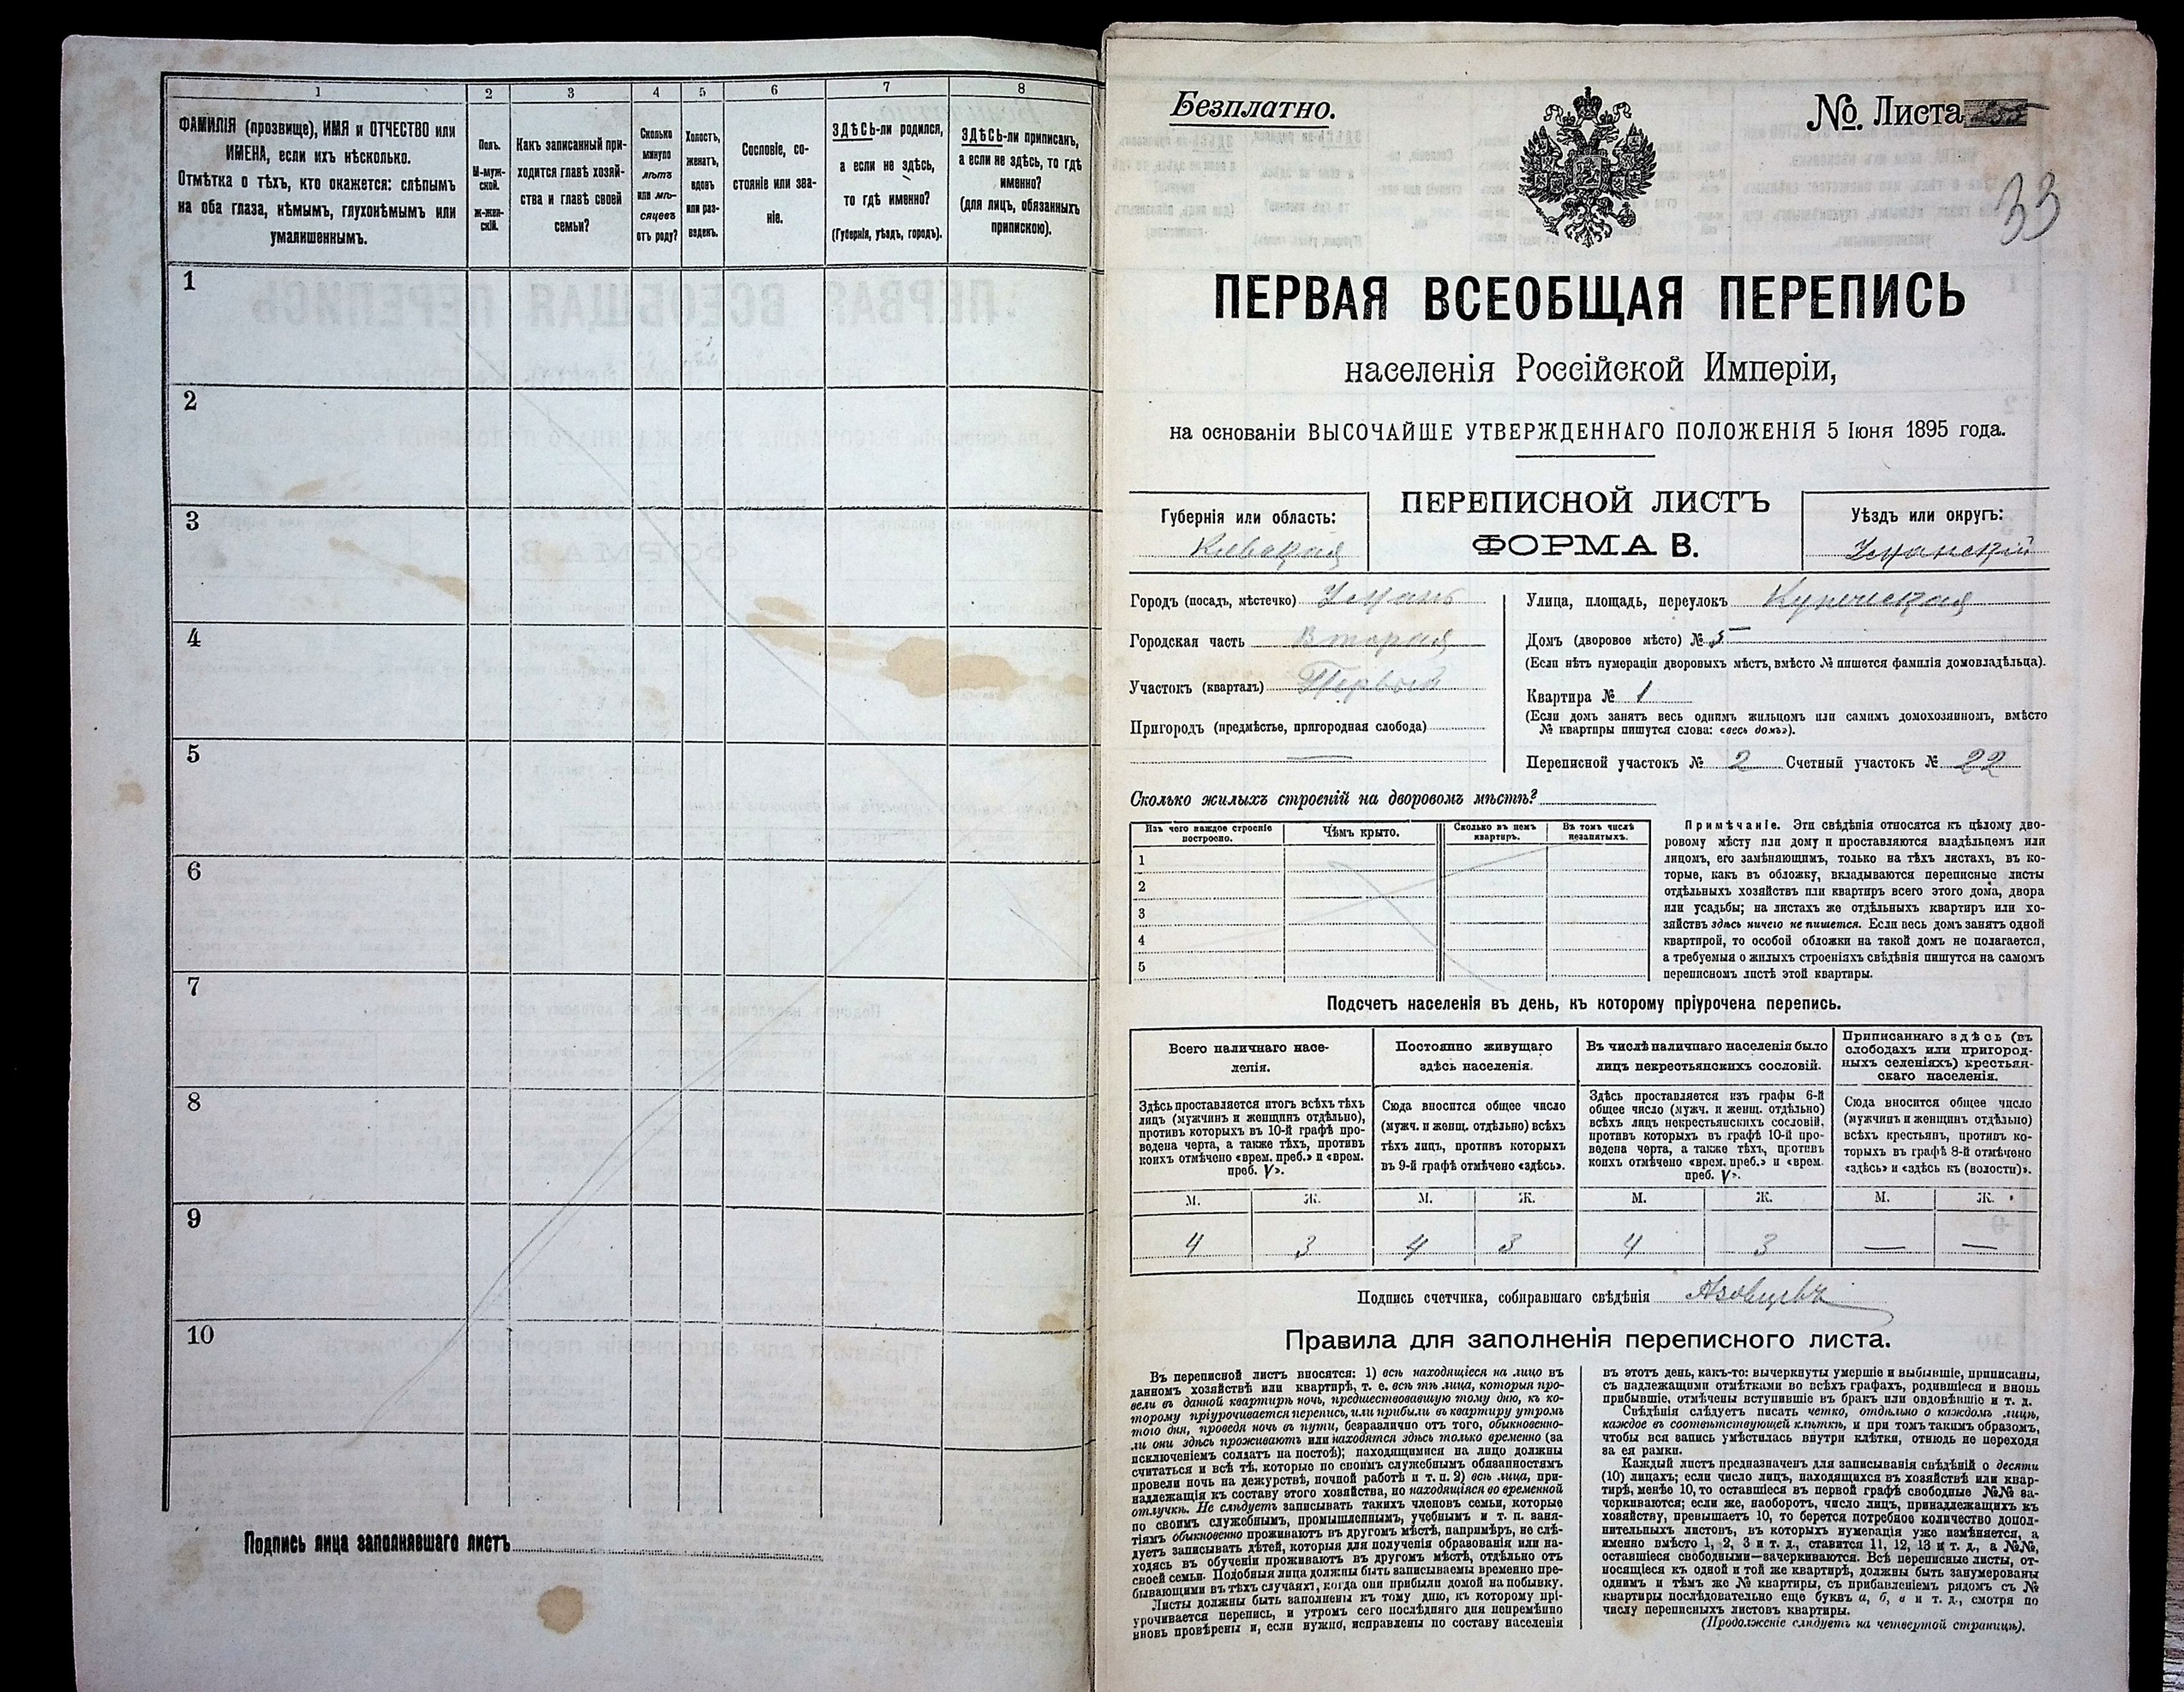 1 2 3 4 5 6 7 8
ФАМИЛІЯ (прозвище), ИМЯ и ОТЧЕСТВО или
ИМЕНА, если ихъ нѣсколько.
Отмѣтка о тѣхъ, кто окажется: слѣпымъ
на оба глаза, нѣмымъ, глухонѣмымъ или
умалишеннымъ.
Полъ.
М-муж-
ской.
ж-жен-
скій.
Какъ записанный при-
ходится главѣ хозяй-
ства и главѣ своей
семьи?
Сколько
минуло
лѣтъ
или мѣ-
сяцевъ
отъ роду?
Холостъ,
женатъ,
вдовъ
или раз-
веденъ.
Сословіе, со-
стояніе или зва-
ніе.
ЗДѢСЬ-ли родился,
а если не здѣсь,
то гдѣ именно?
(Губернія, уѣздъ, городъ).
ЗДѢСЬ-ли приписанъ,
а если не здѣсь, то гдѣ
именно?
(для лицъ, обязанныхъ
припискою).
1
2
3
4
5
6
7
8
9
10
Подпись лица заполнявшаго листъ
Безплатно.
№ Листа 255
33
ПЕРВАЯ ВСЕОБЩАЯ ПЕРЕПИСЬ
населенія Россійской Имперіи,
на основаніи ВЫСОЧАЙШЕ УТВЕРЖДЕННАГО ПОЛОЖЕНІЯ 5 Іюня 1895 года.
Губернія или область:
Кіевская
ПЕРЕПИСНОЙ ЛИСТЪ
ФОРМА В.
Уѣздъ или округъ:
Уманскій
Городъ (посадъ, мѣстечко) Умань
Городская часть Вторая
Участокъ (кварталъ) Первый
Пригородъ (предмѣстье, пригородная слобода)
—
Улица, площадь, переулокъ Купеческая
Домъ (дворовое мѣсто) № 5
(Если нѣтъ нумераціи дворовыхъ мѣстъ, вмѣсто № пишется фамилія домовладѣльца).
Квартира № 1
(Если домъ занятъ весь однимъ жильцомъ или самимъ домохозяиномъ, вмѣсто
№ квартиры пишутся слова: «весь домъ»).
Переписной участокъ № 2 Счетный участокъ № 22
Сколько жилыхъ строеній на дворовомъ мѣстѣ?
Изъ чего каждое строеніе
построено.
Чѣмъ крыто.
Сколько въ немъ
квартиръ.
Въ томъ числѣ
незанятыхъ.
1
2
3
4
5
Примѣчаніе. Эти свѣдѣнія относятся къ цѣлому дво-
ровому мѣсту или дому и проставляются владѣльцемъ или
лицомъ, его замѣняющимъ, только на тѣхъ листахъ, въ ко-
торые, какъ въ обложку, вкладываются переписные листы
отдѣльныхъ хозяйствъ или квартиръ всего этого дома, двора
или усадьбы; на листахъ же отдѣльныхъ квартиръ или хо-
зяйствъ здѣсь ничего не пишется. Если весь домъ занятъ одной
квартирой, то особой обложки на такой домъ не полагается,
а требуемыя о жилыхъ строеніяхъ свѣдѣнія пишутся на самомъ
переписномъ листѣ этой квартиры.
Подсчетъ населенія въ день, къ которому пріурочена перепись.
Всего наличнаго насе-
ленія.
Постоянно живущаго
здѣсь населенія.
Въ числѣ наличнаго населенія было
лицъ некрестьянскихъ сословій.
Приписаннаго здѣсь (въ
слободахъ или пригород-
ныхъ селеніяхъ) крестьян-
скаго населенія.
Здѣсь проставляется итогъ всѣхъ тѣхъ
лицъ (мужчинъ и женщинъ отдѣльно),
противъ которыхъ въ 10-й графѣ про-
ведена черта, а также тѣхъ, противъ
коихъ отмѣчено «врем. преб.» и «врем.
преб. V».
Сюда вносится общее число
(мужч. и женщ. отдѣльно) всѣхъ
тѣхъ лицъ, противъ которыхъ
въ 9-й графѣ отмѣчено «здѣсь».
Здѣсь проставляется изъ графы 6-й
общее число (мужч. и женщ. отдѣльно)
всѣхъ лицъ некрестьянскихъ сословій,
противъ которыхъ въ графѣ 10-й про-
ведена черта, а также тѣхъ, противъ
коихъ отмѣчено «врем. преб.» и «врем.
преб. V».
Сюда вносится общее число
(мужчинъ и женщинъ отдѣльно)
всѣхъ крестьянъ, противъ ко-
торыхъ въ графѣ 8-й отмѣчено
«здѣсь» и «здѣсь къ (волости)».
М. Ж. М. Ж. М. Ж. М. Ж.
4 3 4 3 4 3 — —
Подпись счетчика, собиравшаго свѣдѣнія
Правила для заполненія переписного листа.
Въ переписной листъ вносятся: 1) всѣ находящіеся на лицо въ
данномъ хозяйствѣ или квартирѣ, т. е. всѣ тѣ лица, которыя про-
вели въ данной квартирѣ ночь, предшествовавшую тому дню, къ ко-
торому пріурочивается перепись, или прибыли въ квартиру утромъ
того дня, проведя ночь въ пути, безразлично отъ того, обыкновенно-
ли они здѣсь проживаютъ или находятся здѣсь только временно (за
исключеніемъ солдатъ на постоѣ); находящимися на лицо должны
считаться и всѣ тѣ, которые по своимъ служебнымъ обязанностямъ
провели ночь на дежурствѣ, ночной работѣ и т. п. 2) всѣ лица, при-
надлежащія къ составу этого хозяйства, но находящіяся во временной
отлучкѣ. Не слѣдуетъ записывать такихъ членовъ семьи, которые
по своимъ служебнымъ, промышленнымъ, учебнымъ и т. п. заня-
тіямъ обыкновенно проживаютъ въ другомъ мѣстѣ, напримѣръ, не слѣ-
дуетъ записывать дѣтей, которыя для полученія образованія или на-
ходясь въ обученіи проживаютъ въ другомъ мѣстѣ, отдѣльно отъ
своей семьи. Подобныя лица должны быть записываемы временно пре-
бывающими въ тѣхъ случаяхъ, когда они прибыли домой на побывку.
Листы должны быть заполнены къ тому дню, къ которому прі-
урочивается перепись, и утромъ сего послѣдняго дня непремѣнно
вновь провѣрены и, если нужно, исправлены по составу населенія
въ этотъ день, какъ-то: вычеркнуты умершіе и выбывшіе, приписаны,
съ надлежащими отмѣтками во всѣхъ графахъ, родившіеся и вновь
прибывшіе, отмѣчены вступившіе въ бракъ или овдовѣвшіе и т. д.
Свѣдѣнія слѣдуетъ писать четко, отдѣльно о каждомъ лицѣ,
каждое въ соотвѣтствующей клѣткѣ, и при томъ такимъ образомъ,
чтобы вся запись умѣстилась внутри клѣтки, отнюдь не переходя
за ея рамки.
Каждый листъ предназначенъ для записыванія свѣдѣній о десяти
(10) лицахъ; если число лицъ, находящихся въ хозяйствѣ или квар-
тирѣ, менѣе 10, то оставшіеся въ первой графѣ свободные №№ за-
черкиваются; если же, наоборотъ, число лицъ, принадлежащихъ къ
хозяйству, превышаетъ 10, то берется потребное количество допол-
нительныхъ листовъ, въ которыхъ нумерація уже измѣняется, а
именно вмѣсто 1, 2, 3 и т. д., ставится 11, 12, 13 и т. д., а №№,
оставшіеся свободными—зачеркиваются. Всѣ переписные листы, от-
носящіеся къ одной и той же квартирѣ, должны быть занумерованы
однимъ и тѣмъ же № квартиры, съ прибавленіемъ рядомъ съ №
квартиры послѣдовательно еще буквъ а, б, в и т. д., смотря по
числу переписныхъ листовъ квартиры.
(Продолженіе слѣдуетъ на четвертой страницѣ).